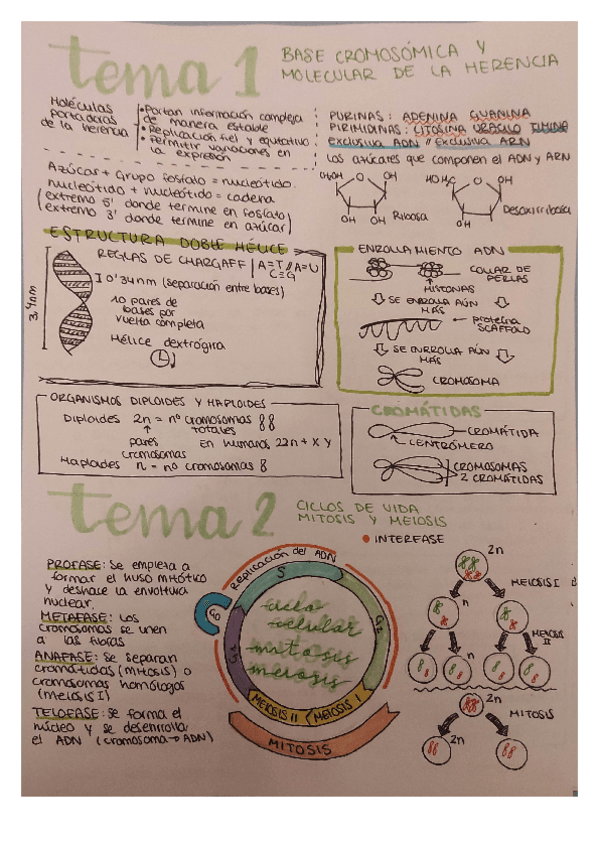 tema 1
BASE CROMOSÓMICA Y
MOLECULAR DE LA HERENCIA
Moléculas
portadoras
de la herencia
• Portan información compleja
de manera estable
• Replicación fiel y equitativo
• Permitir variaciones en
la expresión
PURINAS: ADENINA GUANINA
PIRIMIDINAS: CITOSINA URACILO TIMINA
exclusiva ADN // Exclusiva ARN
Los azúcares que componen el ADN y ARN
OH OH
OH OH Ribosa
OH
OH Desoxirribosa
Azúcar + Grupo fosfato = nucleótido.
nucleótido + nucleótido = cadena
(extremo 5' donde termine en fosfato)
(extremo 3' donde termine en azúcar)
ESTRUCTURA DOBLE HÉLICE
REGLAS DE CHARGAFF | A=T // A=U
C≡G
3,4nm
0'34nm (separación entre bases)
10 pares de
bases por
vuelta completa
Hélice dextrógira
ENROLLAMIENTO ADN
COLLAR DE
PERLAS
HISTONAS
SE ENROLLA AÚN
MÁS
proteína
SCAFFOLD
SE ENROLLA AÚN
MÁS
CROMOSOMA
ORGANISMOS DIPLOIDES Y HAPLOIDES
Diploides 2n = nº cromosomas
totales
pares
cromosomas
En humanos 22n + X Y
Haploides n = nº cromosomas
CROMÁTIDAS
CROMÁTIDA
CENTRÓMERO
CROMOSOMAS
2 CROMÁTIDAS
tema 2
CICLOS DE VIDA
MITOSIS Y MEIOSIS
• INTERFASE
PROFASE: Se empieza a
formar el huso mitótico
y deshace la envoltura
nuclear.
METAFASE: Los
cromosomas se unen
a las fibras
ANAFASE: Se separan
cromátidas (mitosis) o
cromosomas homólogos
(meiosis I)
TELOFASE: Se forma el
núcleo y se desenrolla
el ADN (cromosoma → ADN)
Replicación del ADN
S
G0
G1
G2
ciclo
celular
mitosis
meiosis
MEIOSIS II
MEIOSIS I
MITOSIS
2n
MEIOSIS I
n
MEIOSIS
II
n
2n
MITOSIS
2n